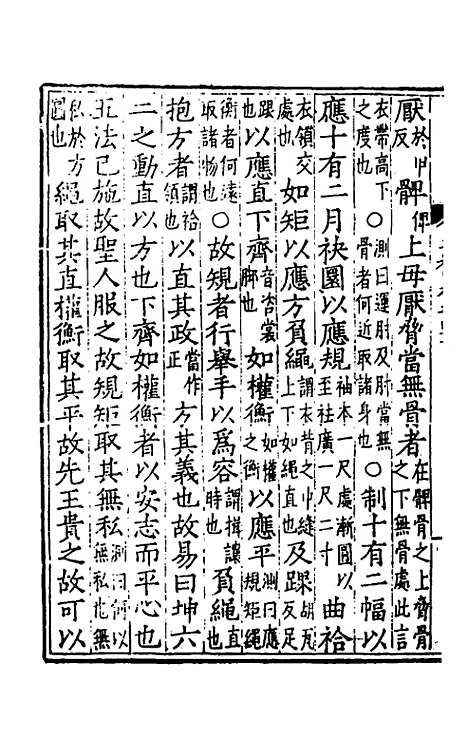 厭於甲反髀俾上毋厭脅當無骨者在髀骨之上脅骨之下無骨處此言
衣帶高下之度也○測曰運肘及肘當無骨者何近取諸身也○制十有二幅以
應十有二月袂圜以應規袖本一尺處漸圜以至袪廣一尺二寸曲袷
衣領交處也如矩以應方負繩謂衣背之中縫上下如繩直也及踝胡瓦反足
跟也以應直下齊音咨裳腳也如權衡如權之衡以應平測曰應規矩繩
衡者何遠取諸物也○故規者行舉手以爲容謂揖讓時也負繩直也
抱方者謂袷領也以直其政當作正方其義也故易曰坤六
二之動直以方也下齊如權衡者以安志而平心也
五法已施故聖人服之故規矩取其無私測曰何以無私也無
私於方圜也繩取其直權衡取其平故先王貴之故可以